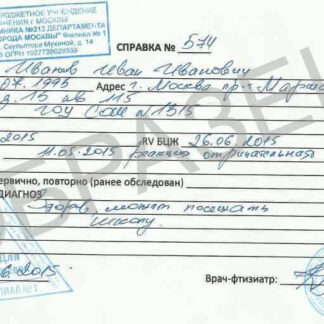 БЮДЖЕТНОЕ УЧРЕЖДЕНИЕ
НЕНИЯ г. МОСКВЫ
ИНИКА №212 ДЕПАРТАМЕНТА
ГОРОДА МОСКВЫ" Филиал № 1
Скульптора Мухиной, д. 14
ОГРН 1027739029339
СПРАВКА № 574
Иванов Иван Иванович
07.1995 Адрес г. Москва пр-т Марша
д. 15 кв 115
ГОУ СОШ №1315
2015 RV БЦЖ 26.06.2015
11.05.2015 реакция отрицательная
ервично, повторно (ранее обследован)
ДИАГНОЗ
Здоров, может посещать
школу.
2015
Врач-фтизиатр:
ДЛЯ
ИЛИАЛ № 1
ОБРАЗЕЦ